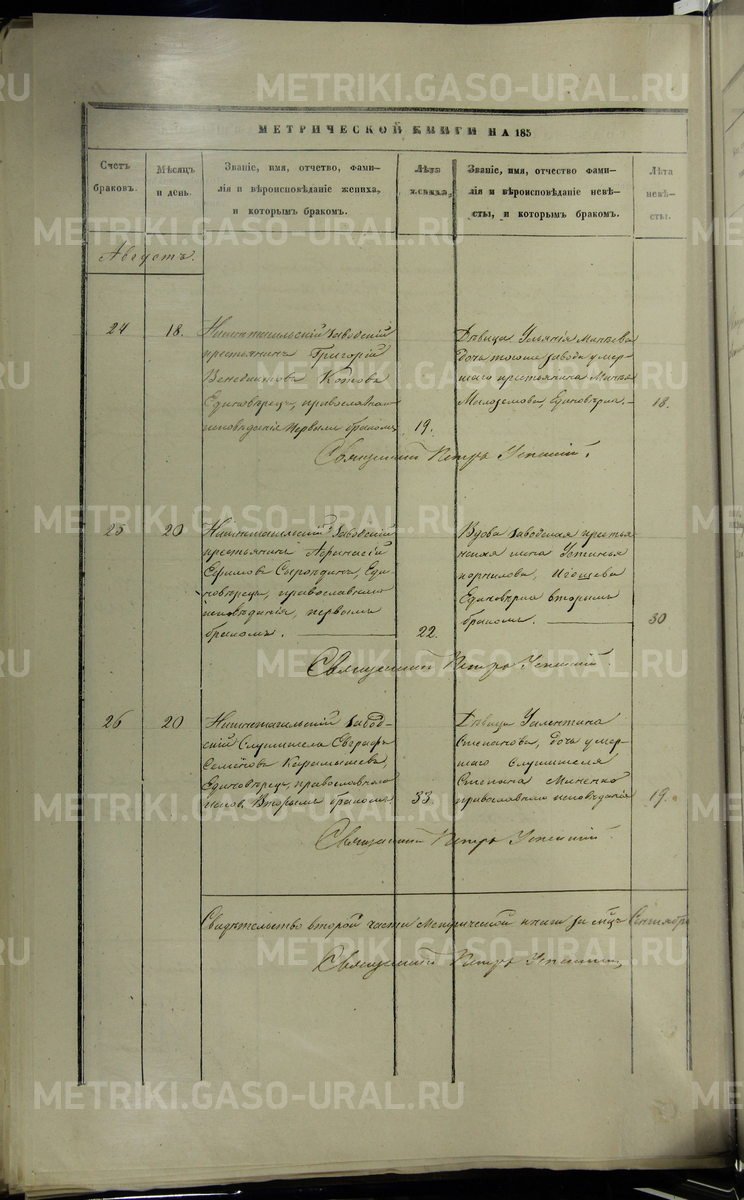 METRIKI.GASO-URAL.RU
МЕТРИЧЕСКОЙ КНИГИ НА 185
Счетъ браковъ.
Мѣсяцъ и день.
Званіе, имя, отчетво, фами-
лія и вѣроисповѣданіе жениха,
и которымъ бракомъ.
Лѣта
жениха.
Званіе, имя, отчество фами-
лія и вѣроисповѣданіе невѣ-
сты, и которымъ бракомъ.
Лѣта
невѣ-
сты.
Августъ.
24
18.
Нижнетагильскій заводскій
крестьянинъ Григорій
Венедиктовъ Котовъ
Единовѣрецъ, православнаго
исповѣданія первымъ бракомъ
19.
Дѣвица Ульянія Минѣева
дочь тогоже завода умер-
шаго крестьянина Минѣя
Единовѣрка.
18.
Священникъ Петръ Успенскій.
25
20
Нижнетагильскій заводскій
крестьянинъ Афанасій
Ефимовъ Еди-
новѣрецъ, православнаго
исповѣданія, первымъ
бракомъ.
22.
Вдова заводская крестья
нская жена Устинья
Корнилова,
Единовѣрка вторымъ
бракомъ.
30
Священникъ Петръ Успенскій.
26
20
Нижнетагильскій завод-
скій Служитель Евграфъ
Семёновъ
Единовѣрецъ, православнаго
Вторымъ бракомъ
33.
Дѣвица Уалентина
Степанова, дочь умер-
шаго служителя
Степана
православнаго исповѣданія
19.
Священникъ Петръ Успенскій.
Свидѣтельство второй части Метрической книги за мѣцъ Сентябрь
Священникъ Петръ Успенскій